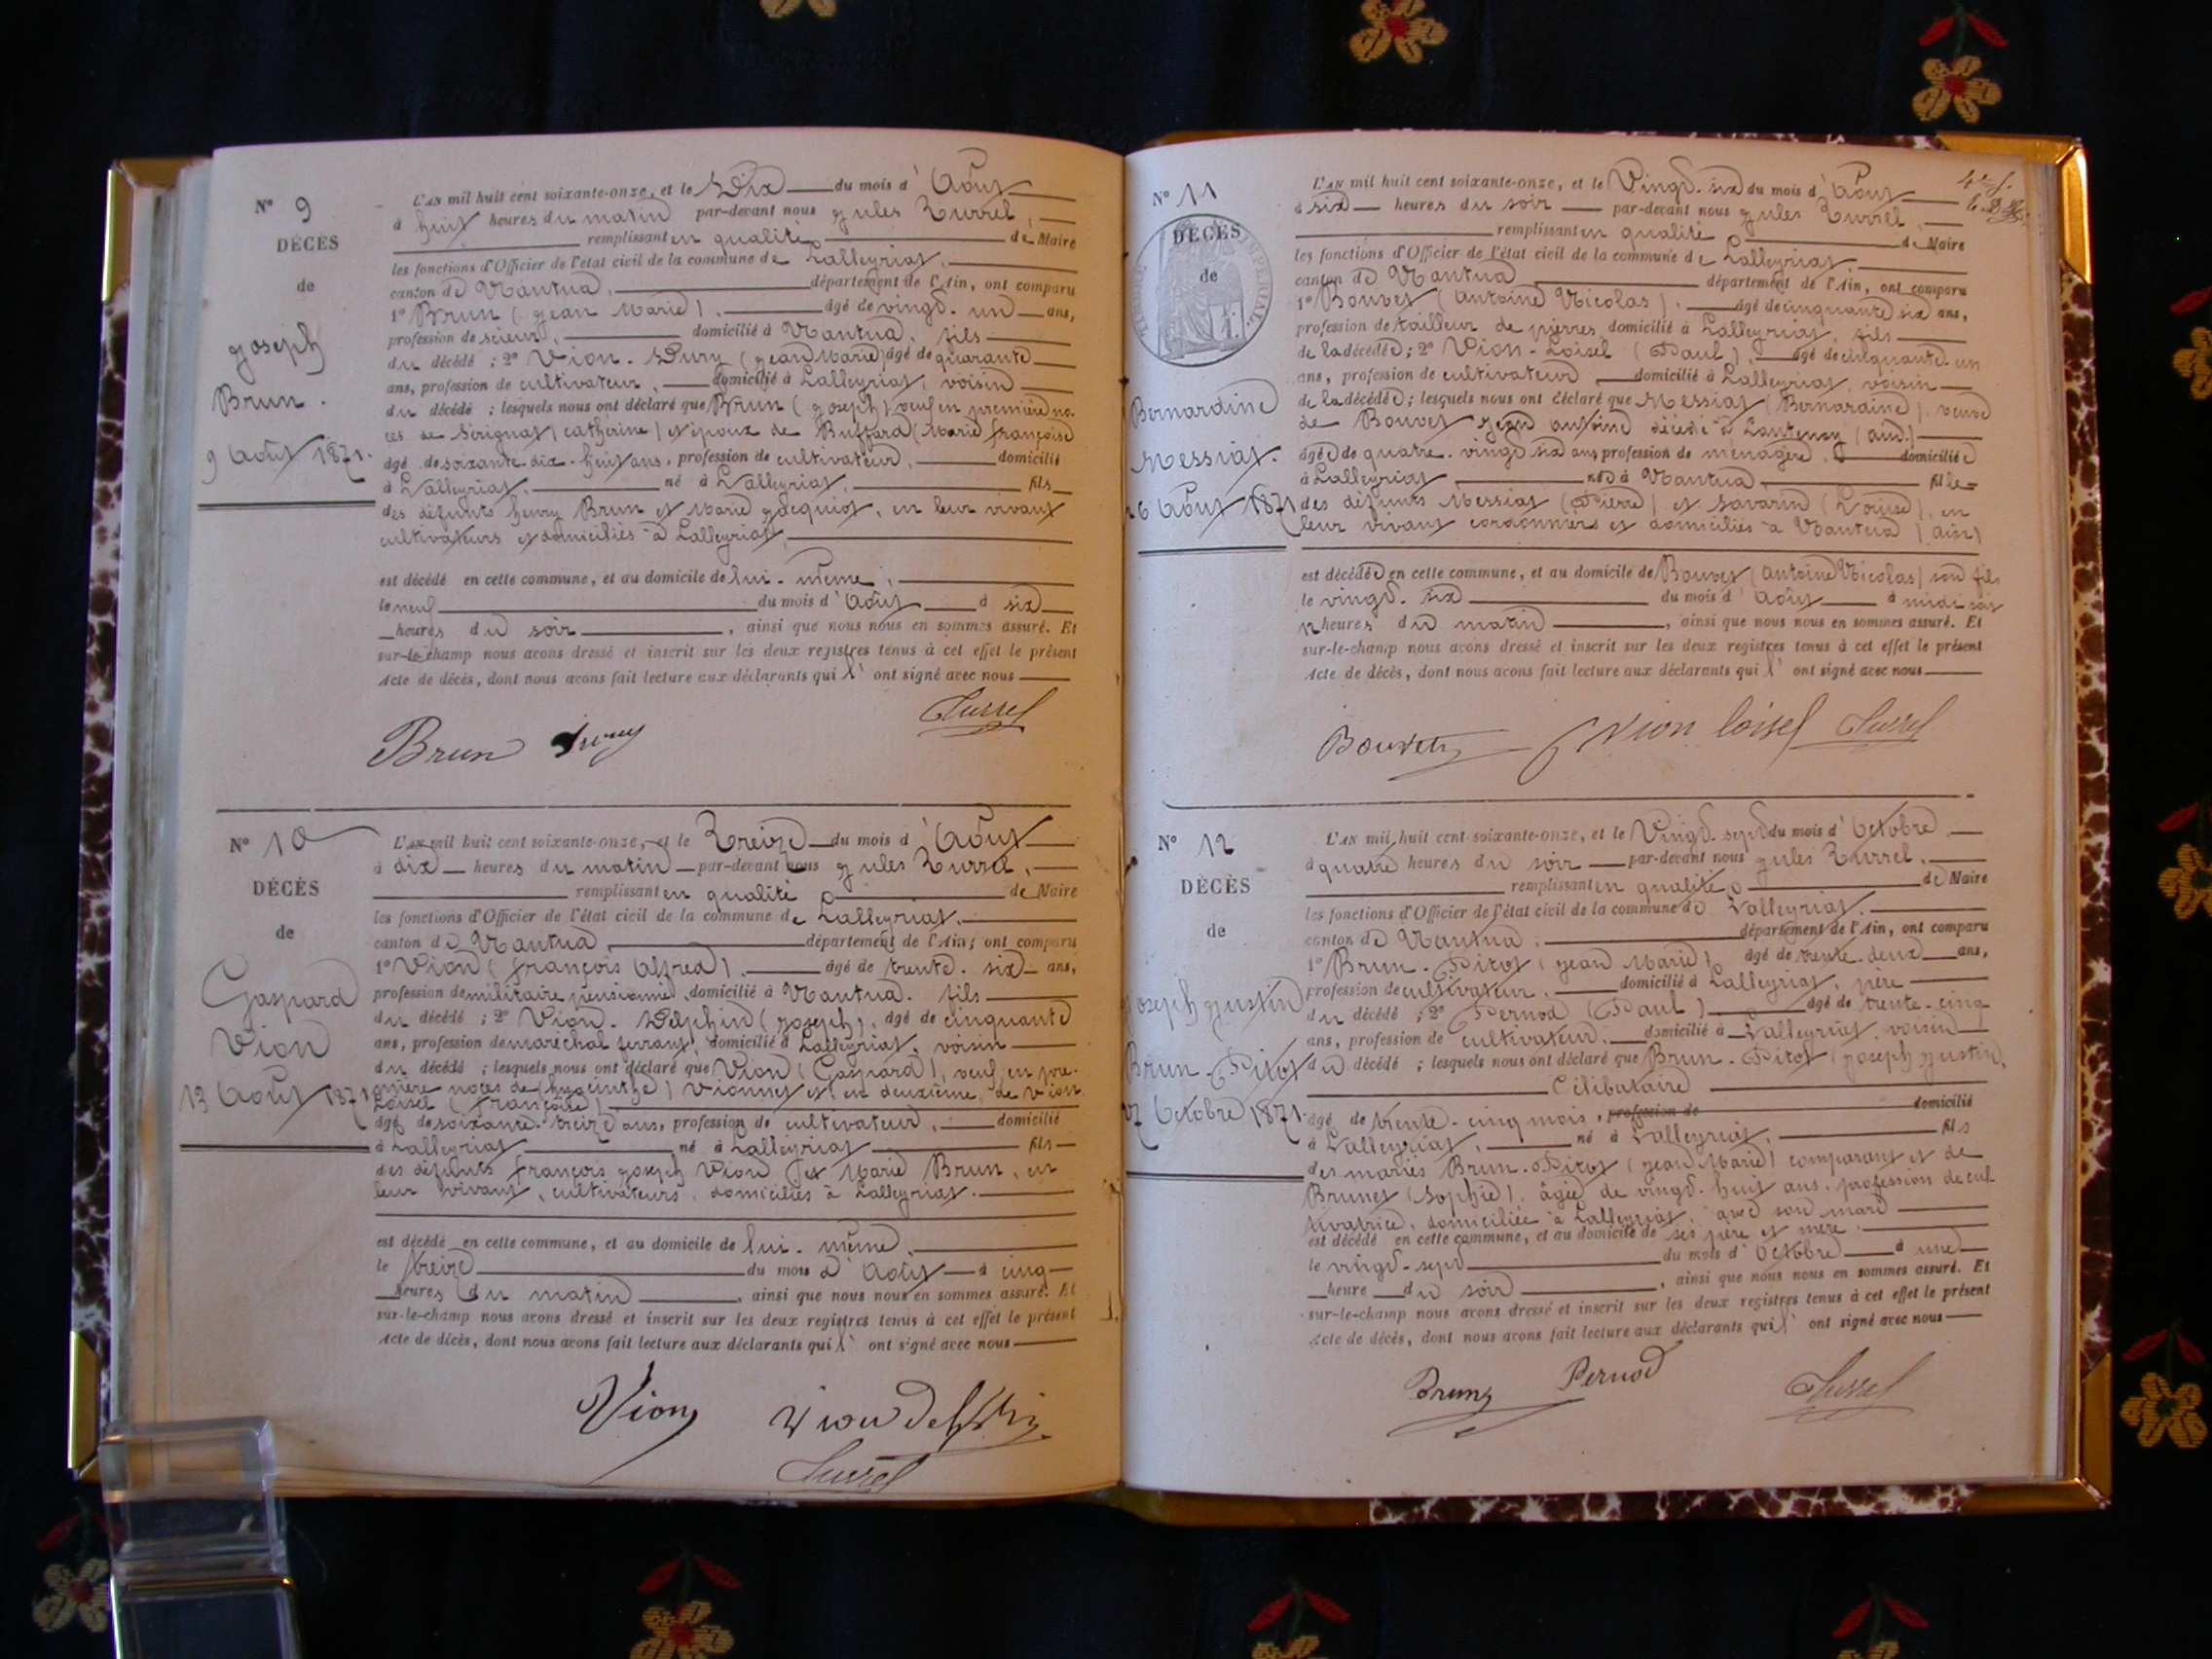 N° 9
DÉCÈS
de
joseph
Brun.
9 Août 1871.
L'AN mil huit cent soixante-onze, et le Dix du mois d'Août
à huit heures du matin par-devant nous jules Turrel,
remplissant en qualité de Maire
les fonctions d'Officier de l'état civil de la commune de Lalleyriat,
canton de Nantua, département de l'Ain, ont comparu
1° Brun (jean Marie), âgé de vingt-un ans,
profession de scieur, domicilié à Nantua, fils
du décédé ; 2° Vion-Dury (jean Marie) âgé de quarante
ans, profession de cultivateur, domicilié à Lalleyriat, voisin
du décédé ; lesquels nous ont déclaré que Brun (joseph) veuf en première no-
ces de Sérignat (catherine) et époux de Buffard (Marie françoise
âgé de soixante-dix-huit ans, profession de cultivateur, domicilié
à Lalleyriat, né à Lalleyriat, fils
des défunts henry Brun et Marie jacquiot, en leur vivant
cultivateurs et domiciliés à Lalleyriat,
est décédé en cette commune, et au domicile de lui-même,
le neuf du mois d'Août à six
heures du soir, ainsi que nous nous en sommes assuré. Et
sur-le-champ nous avons dressé et inscrit sur les deux registres tenus à cet effet le présent
Acte de décès, dont nous avons fait lecture aux déclarants qui l'ont signé avec nous
Turrel
Brun Dury
N° 10
DÉCÈS
de
Gaspard
Vion
13 Août 1871
L'AN mil huit cent soixante-onze, et le Treize du mois d'Août
à dix heures du matin par-devant nous jules Turrel,
remplissant en qualité de Maire
les fonctions d'Officier de l'état civil de la commune de Lalleyriat,
canton de Nantua, département de l'Ain, ont comparu
1° Vion (françois Alfred), âgé de trente-six ans,
profession de militaire pensionné, domicilié à Nantua, fils
du décédé ; 2° Vion-Delphin (joseph), âgé de cinquante
ans, profession de maréchal ferrant, domicilié à Lalleyriat, voisin
du décédé ; lesquels nous ont déclaré que Vion (Gaspard), veuf en pre-
mière noces de (hyacinthe) Vionnet et en deuxième de Vion
Loisel (françoise)
âgé de soixante-treize ans, profession de cultivateur, domicilié
à Lalleyriat, né à Lalleyriat fils
des défunts françois joseph Vion et Marie Brun, en
leur vivant, cultivateurs, domiciliés à Lalleyriat.
est décédé en cette commune, et au domicile de lui-même,
le treize du mois d'Août à cinq
heures du matin, ainsi que nous nous en sommes assuré. Et
sur-le-champ nous avons dressé et inscrit sur les deux registres tenus à cet effet le présent
Acte de décès, dont nous avons fait lecture aux déclarants qui l'ont signé avec nous
Vion Vion delphin
Turrel
N° 11
DÉCÈS
de
Bernardine
Messiat.
26 Août 1871
L'AN mil huit cent soixante-onze, et le Vingt-six du mois d'Août
à six heures du soir par-devant nous jules Turrel,
remplissant en qualité de Maire
les fonctions d'Officier de l'état civil de la commune de Lalleyriat,
canton de Nantua, département de l'Ain, ont comparu
1° Bouvet (Antoine Nicolas), âgé de cinquante six ans,
profession de tailleur de pierres, domicilié à Lalleyriat, fils
de la décédée ; 2° Vion-Loisel (Paul), âgé de cinquante-un
ans, profession de cultivateur, domicilié à Lalleyriat, voisin
de la décédée ; lesquels nous ont déclaré que Messiat (Bernardine), veuve
de Bouvet jean antoine décédé à Lantenay (ain.)
âgée de quatre-vingt six ans profession de ménagère, domiciliée
à Lalleyriat née à Nantua fille
des défunts Messiat (Pierre) et Savarin (Louise), en
leur vivant cordonniers et domiciliés à Nantua (Ain)
est décédée en cette commune, et au domicile de Bouvet (Antoine Nicolas) son fils
le vingt-six du mois d'Août à midi
heures du matin, ainsi que nous nous en sommes assuré. Et
sur-le-champ nous avons dressé et inscrit sur les deux registres tenus à cet effet le présent
Acte de décès, dont nous avons fait lecture aux déclarants qui l'ont signé avec nous
Bouvet Vion loisel Turrel
N° 12
DÉCÈS
de
joseph justin
Brun-Pitot
27 Octobre 1871.
L'AN mil huit cent soixante-onze, et le Vingt-sept du mois d'Octobre
à quatre heures du soir par-devant nous jules Turrel,
remplissant en qualité de Maire
les fonctions d'Officier de l'état civil de la commune de Lalleyriat.
canton de Nantua, département de l'Ain, ont comparu
1° Brun-Pitot (jean Marie), âgé de trente-deux ans,
profession de cultivateur, domicilié à Lalleyriat, père
du décédé ; 2° Pernod (Paul), âgé de trente-cinq
ans, profession de cultivateur, domicilié à Lalleyriat, voisin
du décédé ; lesquels nous ont déclaré que Brun-Pitot (joseph justin),
Célibataire
âgé de trente-cinq mois, profession de domicilié
à Lalleyriat, né à Lalleyriat, fils
des mariés Brun-Pitot (jean Marie) comparant et de
Brunet (Sophie), âgée de vingt-huit ans, profession de cul-
tivatrice, domiciliée à Lalleyriat, avec son mari
est décédé en cette commune, et au domicile de ses père et mère.
le vingt-sept du mois d'Octobre à une
heure du soir, ainsi que nous nous en sommes assuré. Et
sur-le-champ nous avons dressé et inscrit sur les deux registres tenus à cet effet le présent
Acte de décès, dont nous avons fait lecture aux déclarants qui l'ont signé avec nous
Brun Pernod Turrel